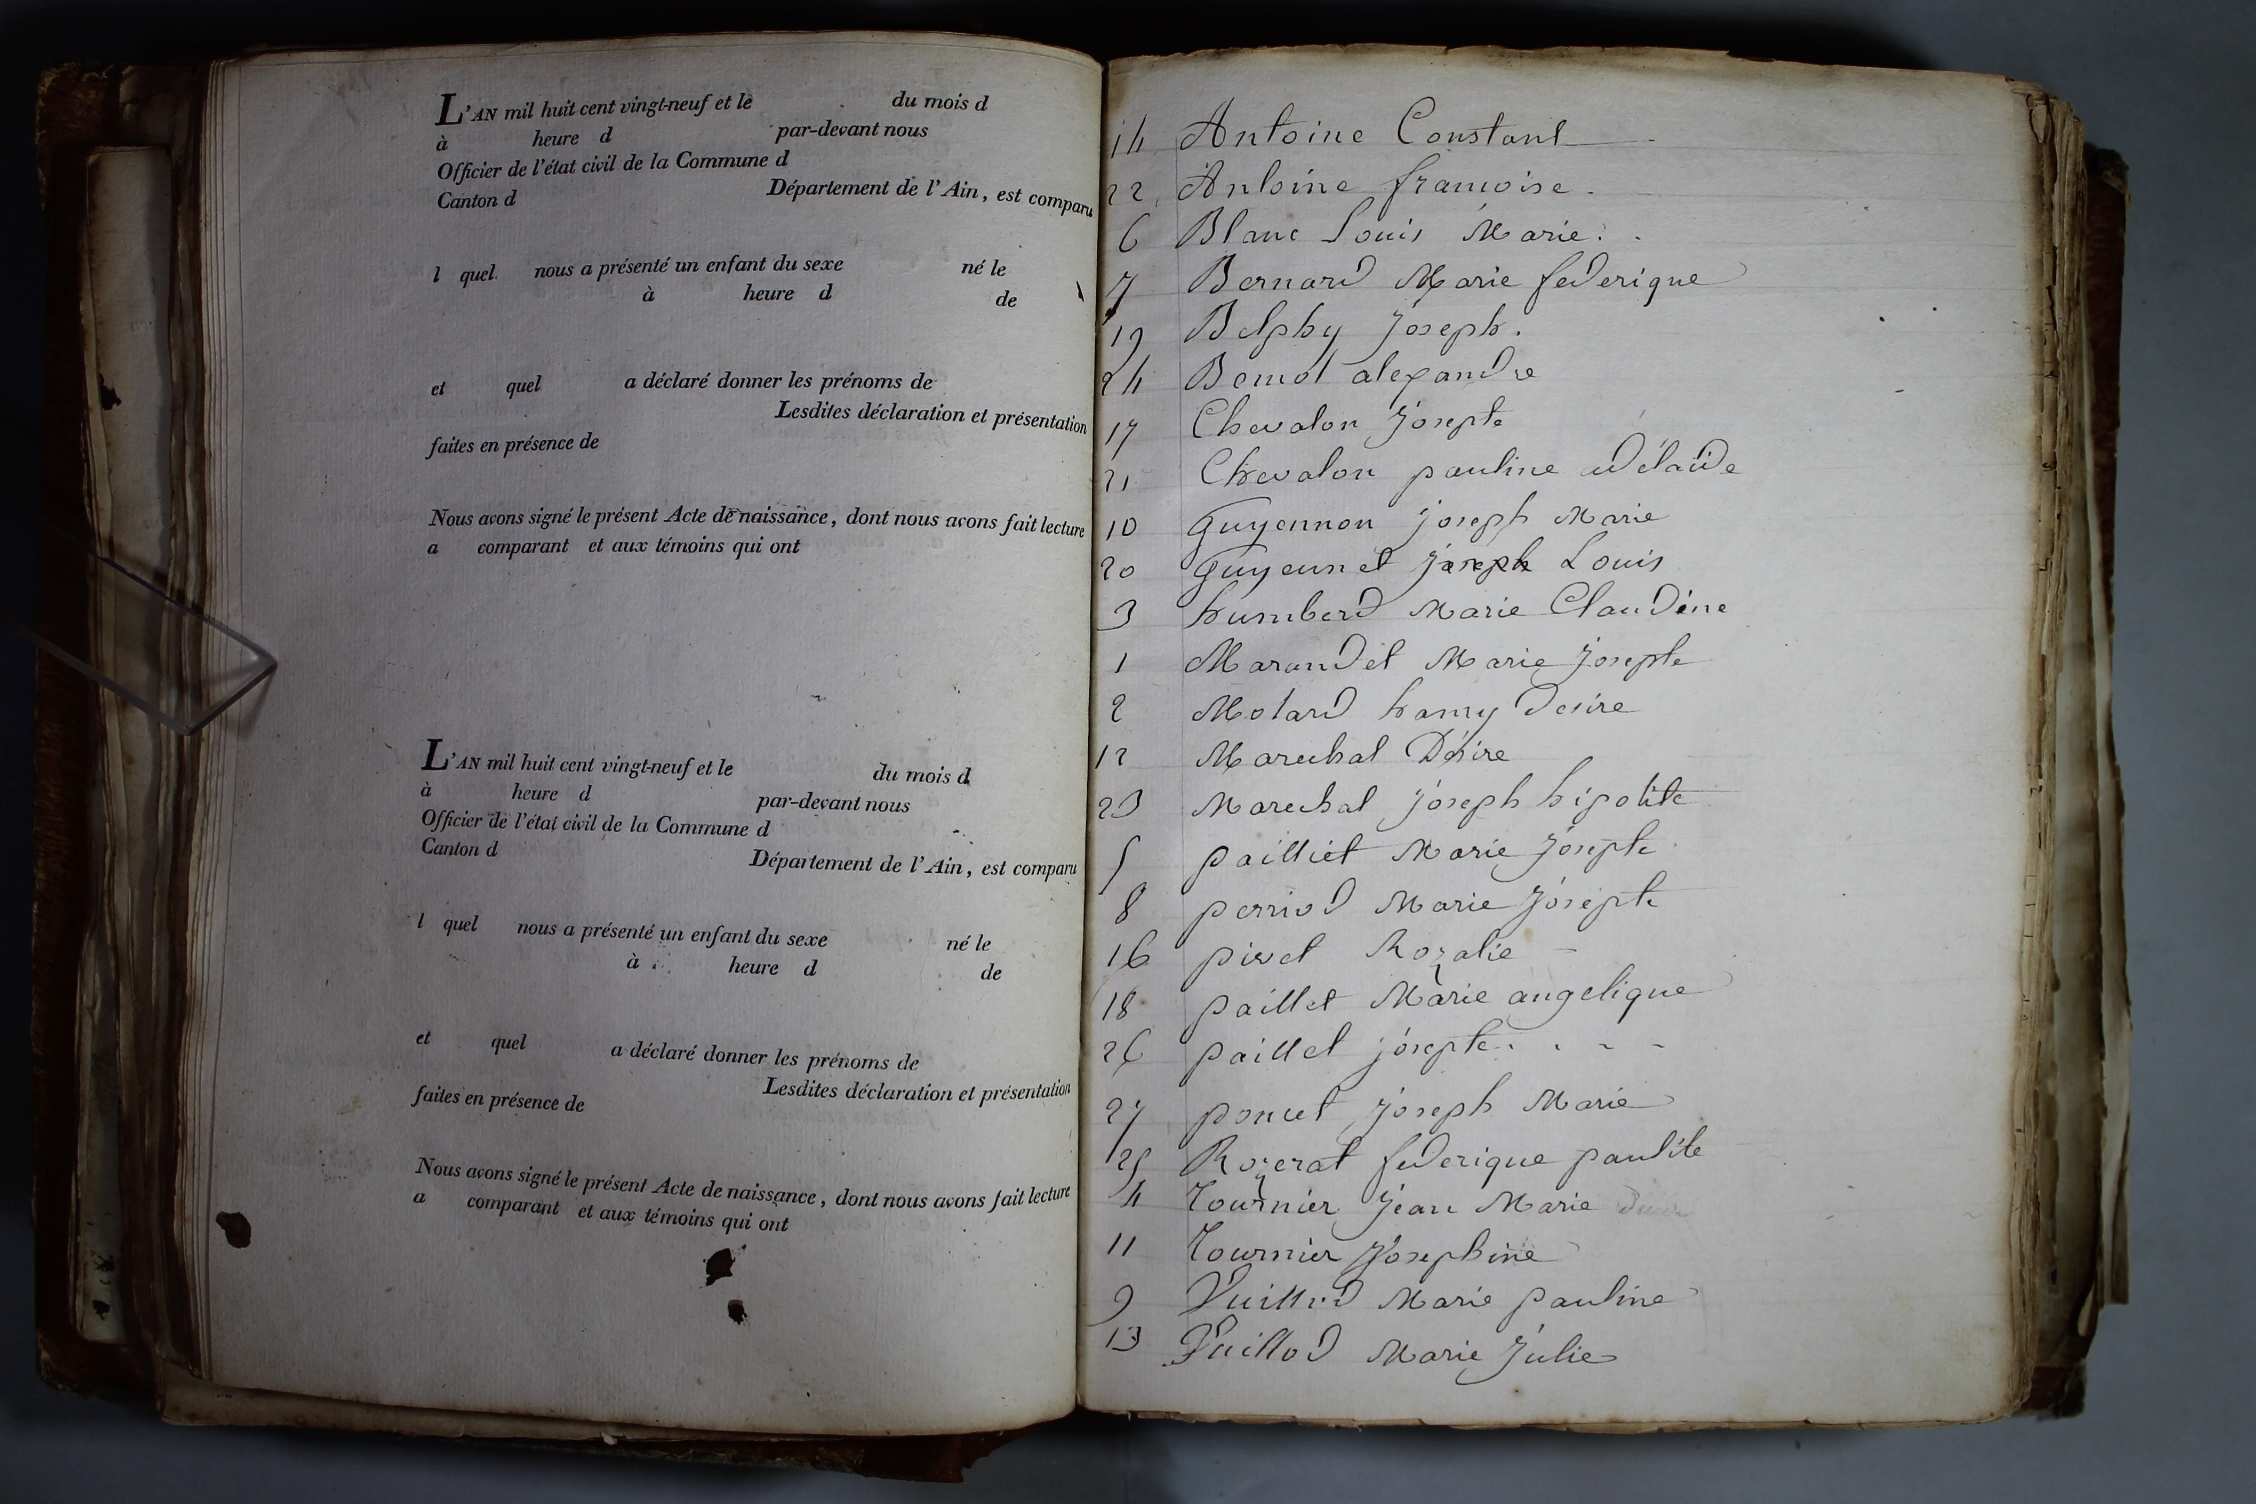 L'AN mil huit cent vingt-neuf et le du mois d
à heure d par-devant nous
Officier de l'état civil de la Commune d
Canton d Département de l'Ain, est comparu
l quel nous a présenté un enfant du sexe né le
à heure d de
et quel a déclaré donner les prénoms de
Lesdites déclaration et présentation
faites en présence de
Nous avons signé le présent Acte de naissance, dont nous avons fait lecture
a comparant et aux témoins qui ont
L'AN mil huit cent vingt-neuf et le du mois d
à heure d par-devant nous
Officier de l'état civil de la Commune d
Canton d Département de l'Ain, est comparu
l quel nous a présenté un enfant du sexe né le
à heure d de
et quel a déclaré donner les prénoms de
Lesdites déclaration et présentation
faites en présence de
Nous avons signé le présent Acte de naissance, dont nous avons fait lecture
a comparant et aux témoins qui ont
14 Antoine Constant
22 Antoine francoise
6 Blanc Louis Marie
7 Bernard Marie federique
19 Belphy Joseph.
24 alexandre
17 Chevalon Josephte
21 Chevalon pauline adélaïde
10 Guyennon joseph Marie
20 Guyennet joseph Louis
3 humberd Marie Claudine
1 Marandet Marie Josephte
2 Motard hanry Desire
12 Marechal Désire
23 Marechal joseph hipolite
5 pailliet Marie Josephte
8 perriod Marie Josephte
16 pivet Rozalie
18 paillet Marie angelique
26 paillet josephte
27 poncet Joseph Marie
25 Rozerat federique paulite
4 Tournier Jean Marie
11 Tournier Josephine
9 Vuillod Marie pauline
13 Vuillod Marie Julie